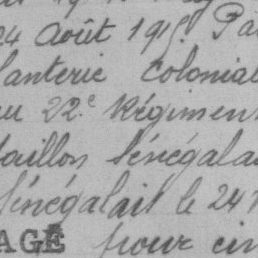 24 Août 1915. Pa
anterie Colonial
au 22.e Régimen
taillon Sénégala
Sénégalais le 24
AGÉ pour cin